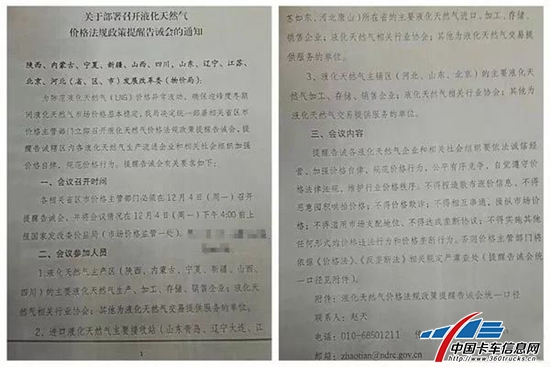 关于部署召开液化天然气
价格法规政策提醒告诫会的通知
陕西、内蒙古、宁夏、新疆、山西、四川、山东、辽宁、江苏、
北京、河北（省、区、市）发展改革委（物价局）：
为防范液化天然气（LNG）价格异常波动，确保迎峰度冬期
间液化天然气市场价格基本稳定，我局决定统一部署相关省区市
价格主管部门立即召开液化天然气价格法规政策提醒告诫会，提
醒告诫辖区内各液化天然气生产流通企业和相关社会组织加强
价格自律，规范价格行为。提醒告诫会有关要求如下：
一、会议召开时间
各相关省区市价格主管部门必须在 12 月 4 日（周一）召开
提醒告诫会，并将会议情况在 12 月 4 日（周一）下午 4:00 前上
报国家发改委价监局（市场价格监管一处）。
二、会议参加人员
1.液化天然气主产区（陕西、内蒙古、宁夏、新疆、山西、
四川）的主要液化天然气生产、加工、存储、销售企业；液化天
然气相关行业协会；其他为液化天然气交易提供服务的单位。
2、进口液化天然气主要接收站（山东青岛、辽宁大连、江
1
苏如东、河北唐山）所在省的主要液化天然气进口、加工、存储、
销售企业；液化天然气相关行业协会；其他为液化天然气交易提
供服务的单位。
3、液化天然气主销区（河北、山东、北京）的主要液化天
然气加工、存储、销售企业；液化天然气相关行业协会；其他为
液化天然气交易提供服务的单位。
三、会议内容
提醒告诫各液化天然气企业和相关社会组织要依法诚信经
营，加强价格自律，规范价格行为，公平有序竞争，自觉遵守价
格法律法规，维护行业价格秩序。不得捏造散布涨价信息，不得
恶意囤积哄抬价格；不得价格欺诈；不得相互串通，操纵市场价
格；不得滥用市场支配地位、不得达成垄断协议；不得实施其他
任何形式的价格违法行为和价格垄断行为。否则价格主管部门将
依据《价格法》、《反垄断法》相关规定严肃查处（提醒告诫会统
一口径见附件）。
附件：液化天然气价格法规政策提醒告诫会统一口径
联系人：赵天
电话：010-68501211
邮箱：zhaotian@ndrc.gov.cn
中国卡车信息网
www.360trucks.cn